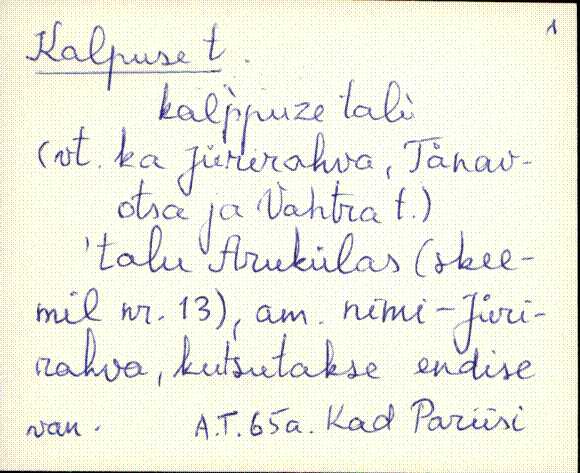 1
Kalpuse t.
kalp̀puze tali
(vt. ka Jürirahva, Tänav-
otsa ja Vahtra t.)
'talu Arukülas (skee-
mil nr. 13), am. nimi-Jüri-
rahva, kutsutakse endise
van. A.T. 65a. Kad Pariisi